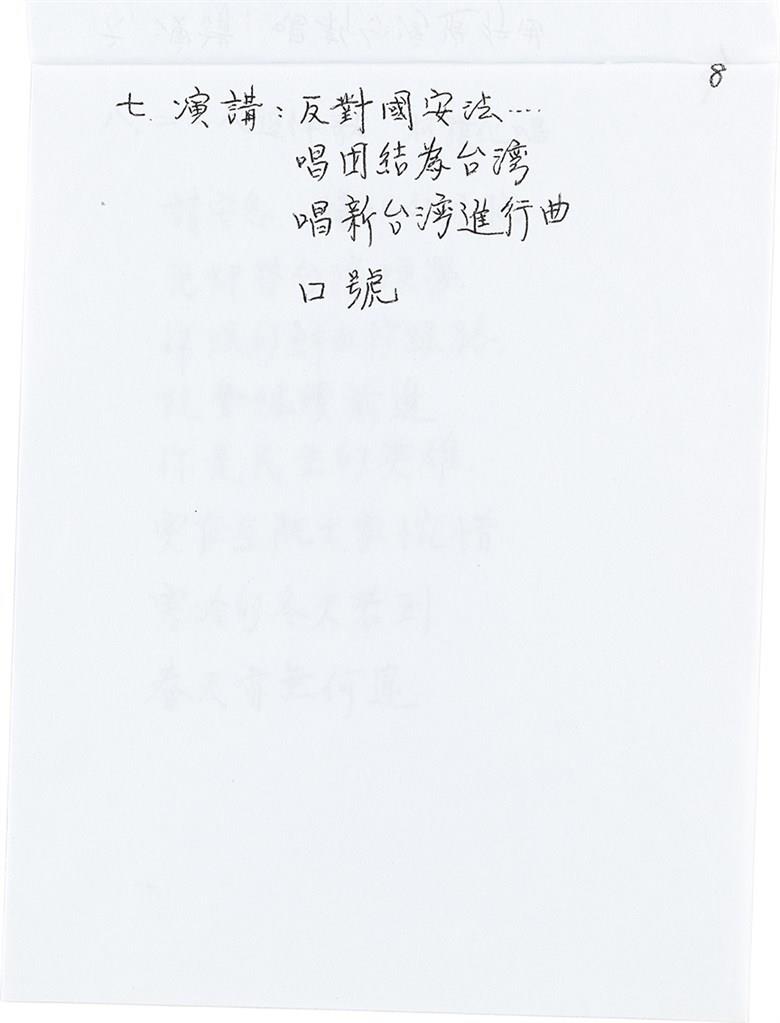 8
七. 演講：反對國安法....
唱团結為台湾
唱新台湾進行曲
口號